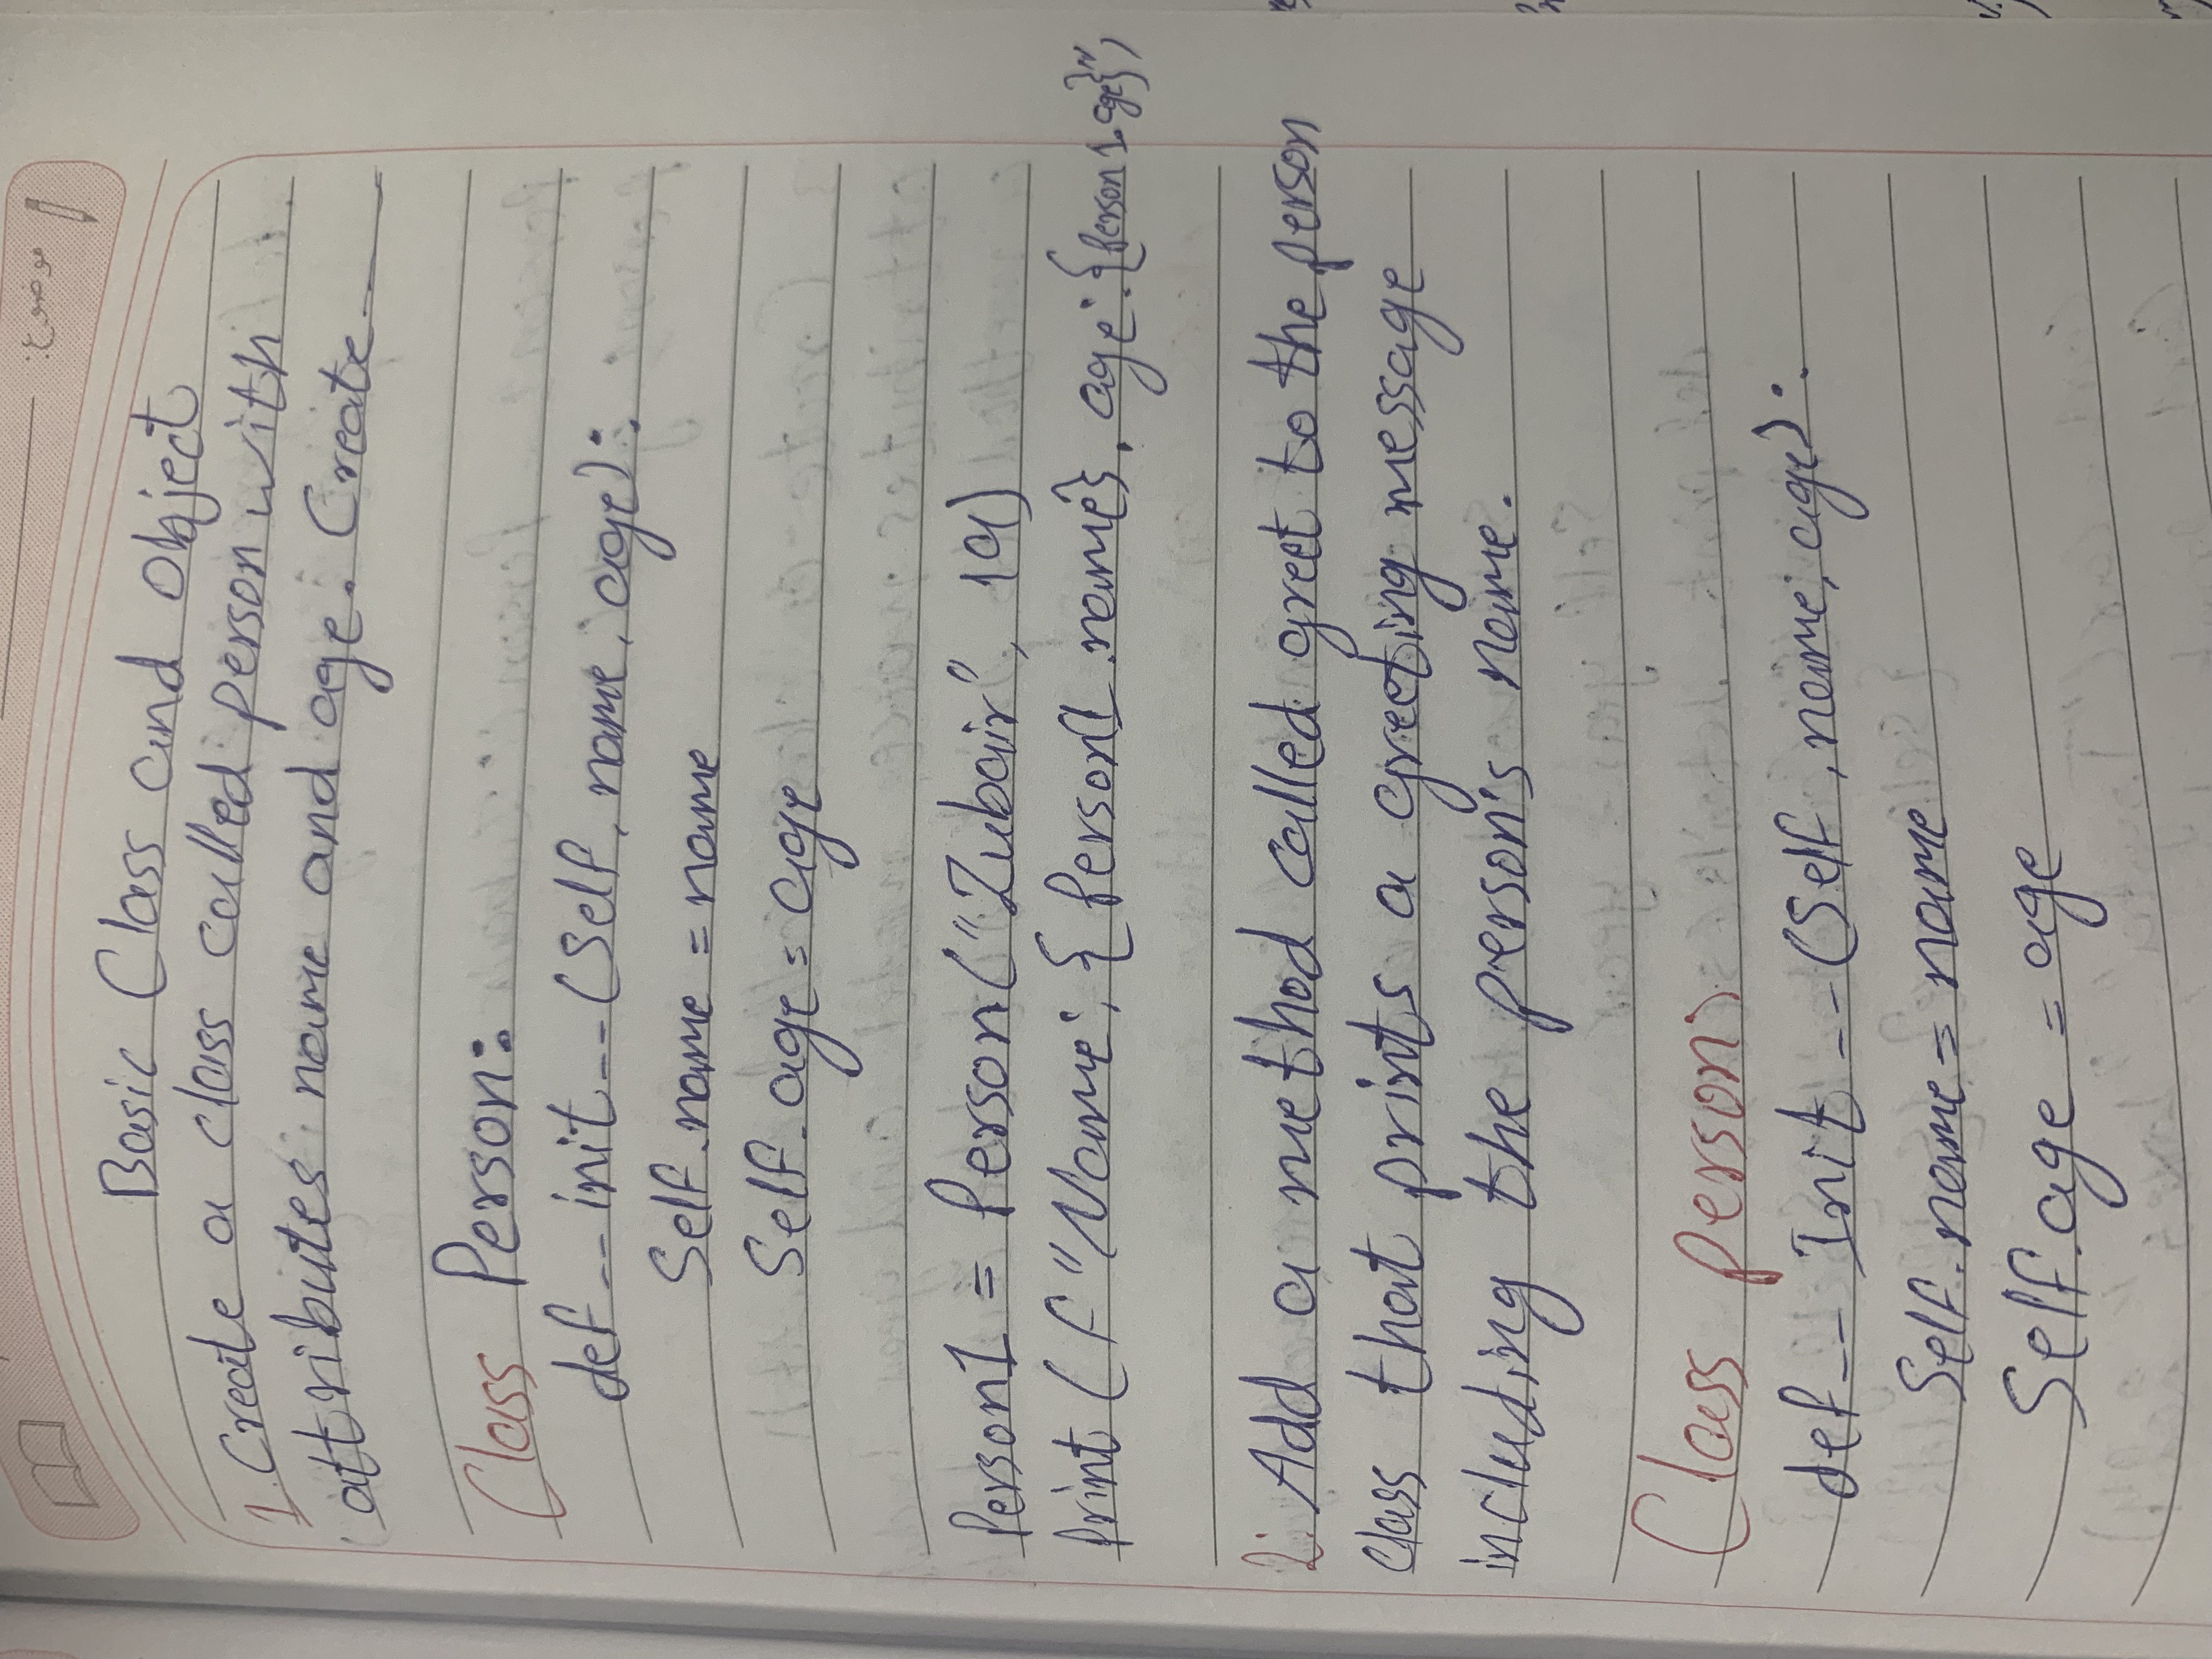 موضوع:
Basic Class and Object
1. Create a class called person with
attributes name and age. Create
Class Person:
def __init__(Self, name, age):
Self.name = name
Self.age = age
Person1 = Person("Zubair", 19)
print (f"Name: {Person1.name}, age: {Person1.age}")
2. Add a method called greet to the person
class that prints a greeting message
including the person's name.
Class person:
def __Init__(Self, name, age):
Self.name = name
Self.age = age